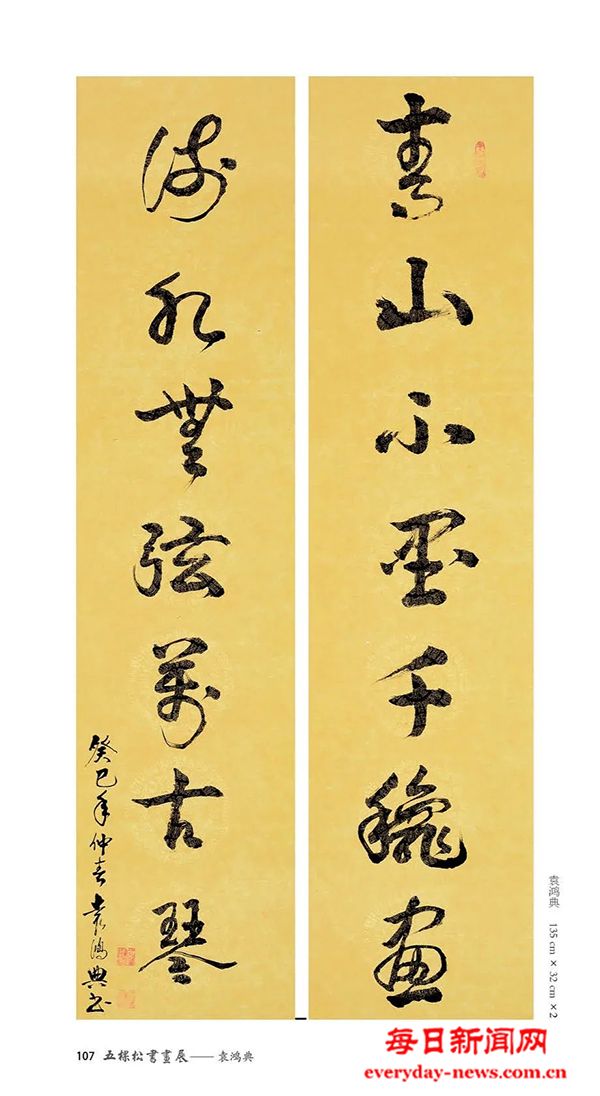 青山不墨千龝畫
流水無弦萬古琴
癸巳年仲春袁鴻典書
袁鸿典 135 cm × 32 cm × 2
107 五棵松書畫展——袁鸿典
每日新闻网
everyday-news.com.cn